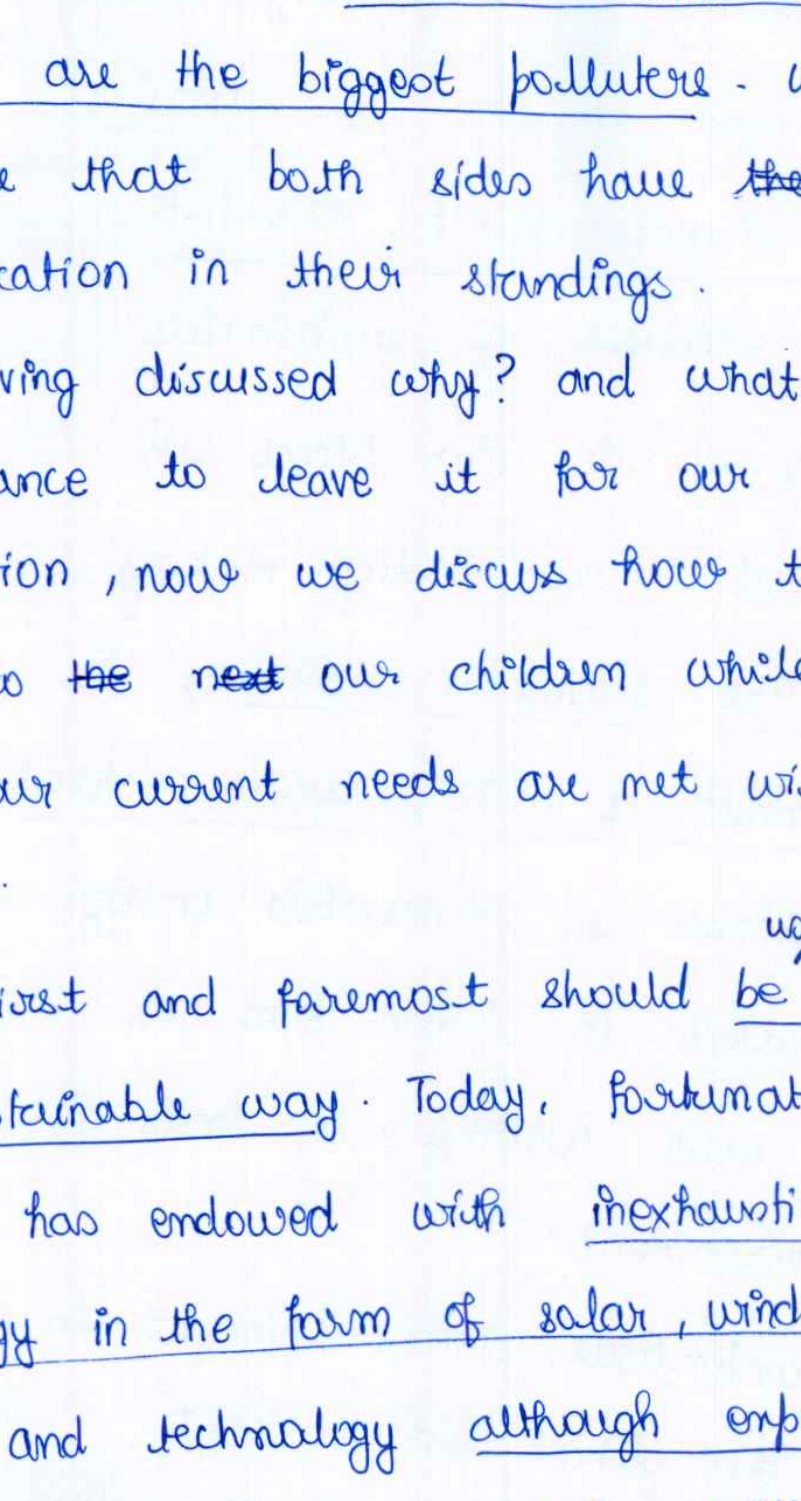 are the biggest polluters.
that both sides have the
cation in their standings.
ving discussed why? and what
ance to leave it for our
ion, now we discus how t
the next our children while
ur current needs are met wi
irst and foremost should be
stainable way. Today, Fortunat
has endowed with inexhausti
gy in the form of solar, wind
and technology although exp